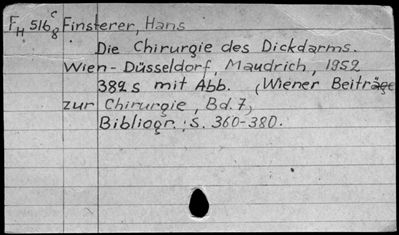 F_H 516^c_8 Finsterer, Hans
Die Chirurgie des Dickdarms.
Wien - Düsseldorf, Maudrich, 1952
382 s mit Abb. (Wiener Beiträge
zur Chirurgie, Bd. 7,
Bibliogr.: s. 360-380.